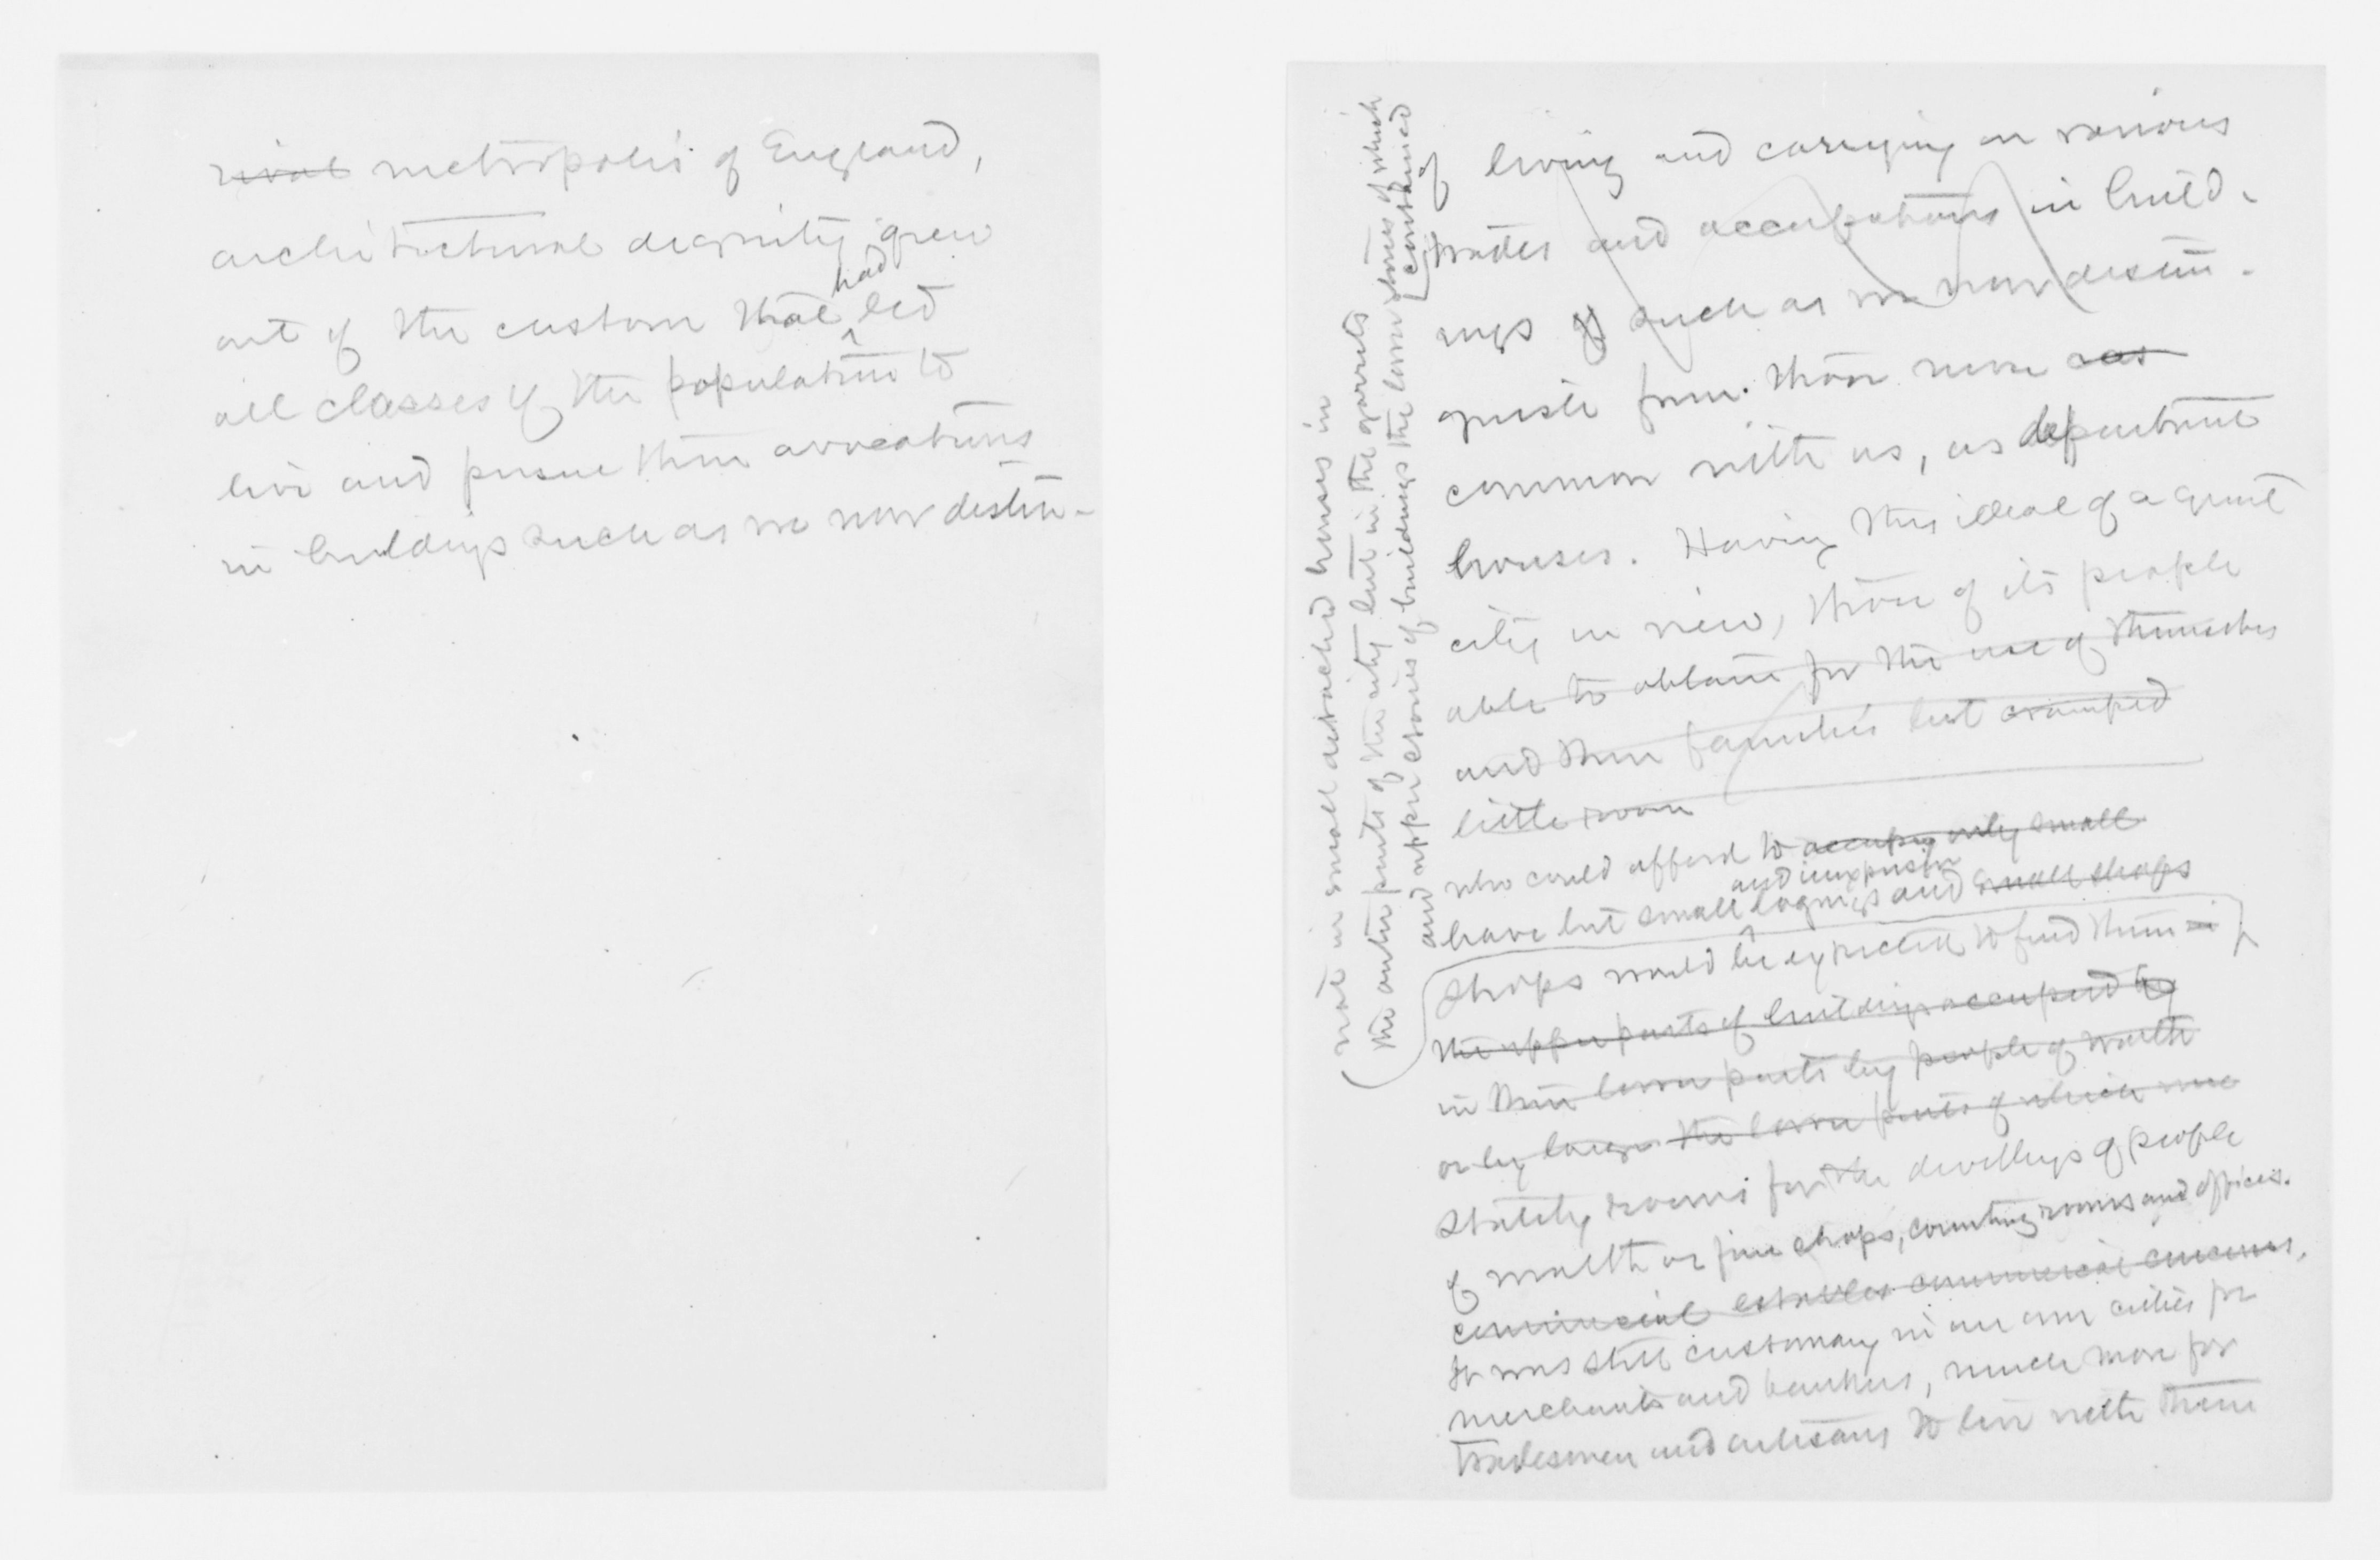 rival metropolis of England,
architectural dignity grew
out of the custom that had led
all classes of the population to
live and pursue their avocations
in buildings such as we now distin-
of living and carrying on various
trades and occupations in build-
ings of such as we now distin-
guish from those more as
common with us, as department
houses. Having this ideal of a great
city in view, those of its people
able to obtain for the use of themselves
and their families but cramped
little room
who could afford to occupy only small
and inexpensive
have but small lodgings and small shops
shops would be expected to find them in
the upper parts of buildings occupied by
in their lower parts by people of wealth
or by large the lower parts of which were
stately rooms for the dwellings of people
of wealth or fine shops, counting rooms and offices.
commercial establis commercial concerns,
It was still customary in our own cities for
merchants and bankers, much more for
tradesmen and artisans to live with their
not in small detached houses in
the outer parts of the city but in the garrets
and upper stories of buildings the lower stories of which
contained